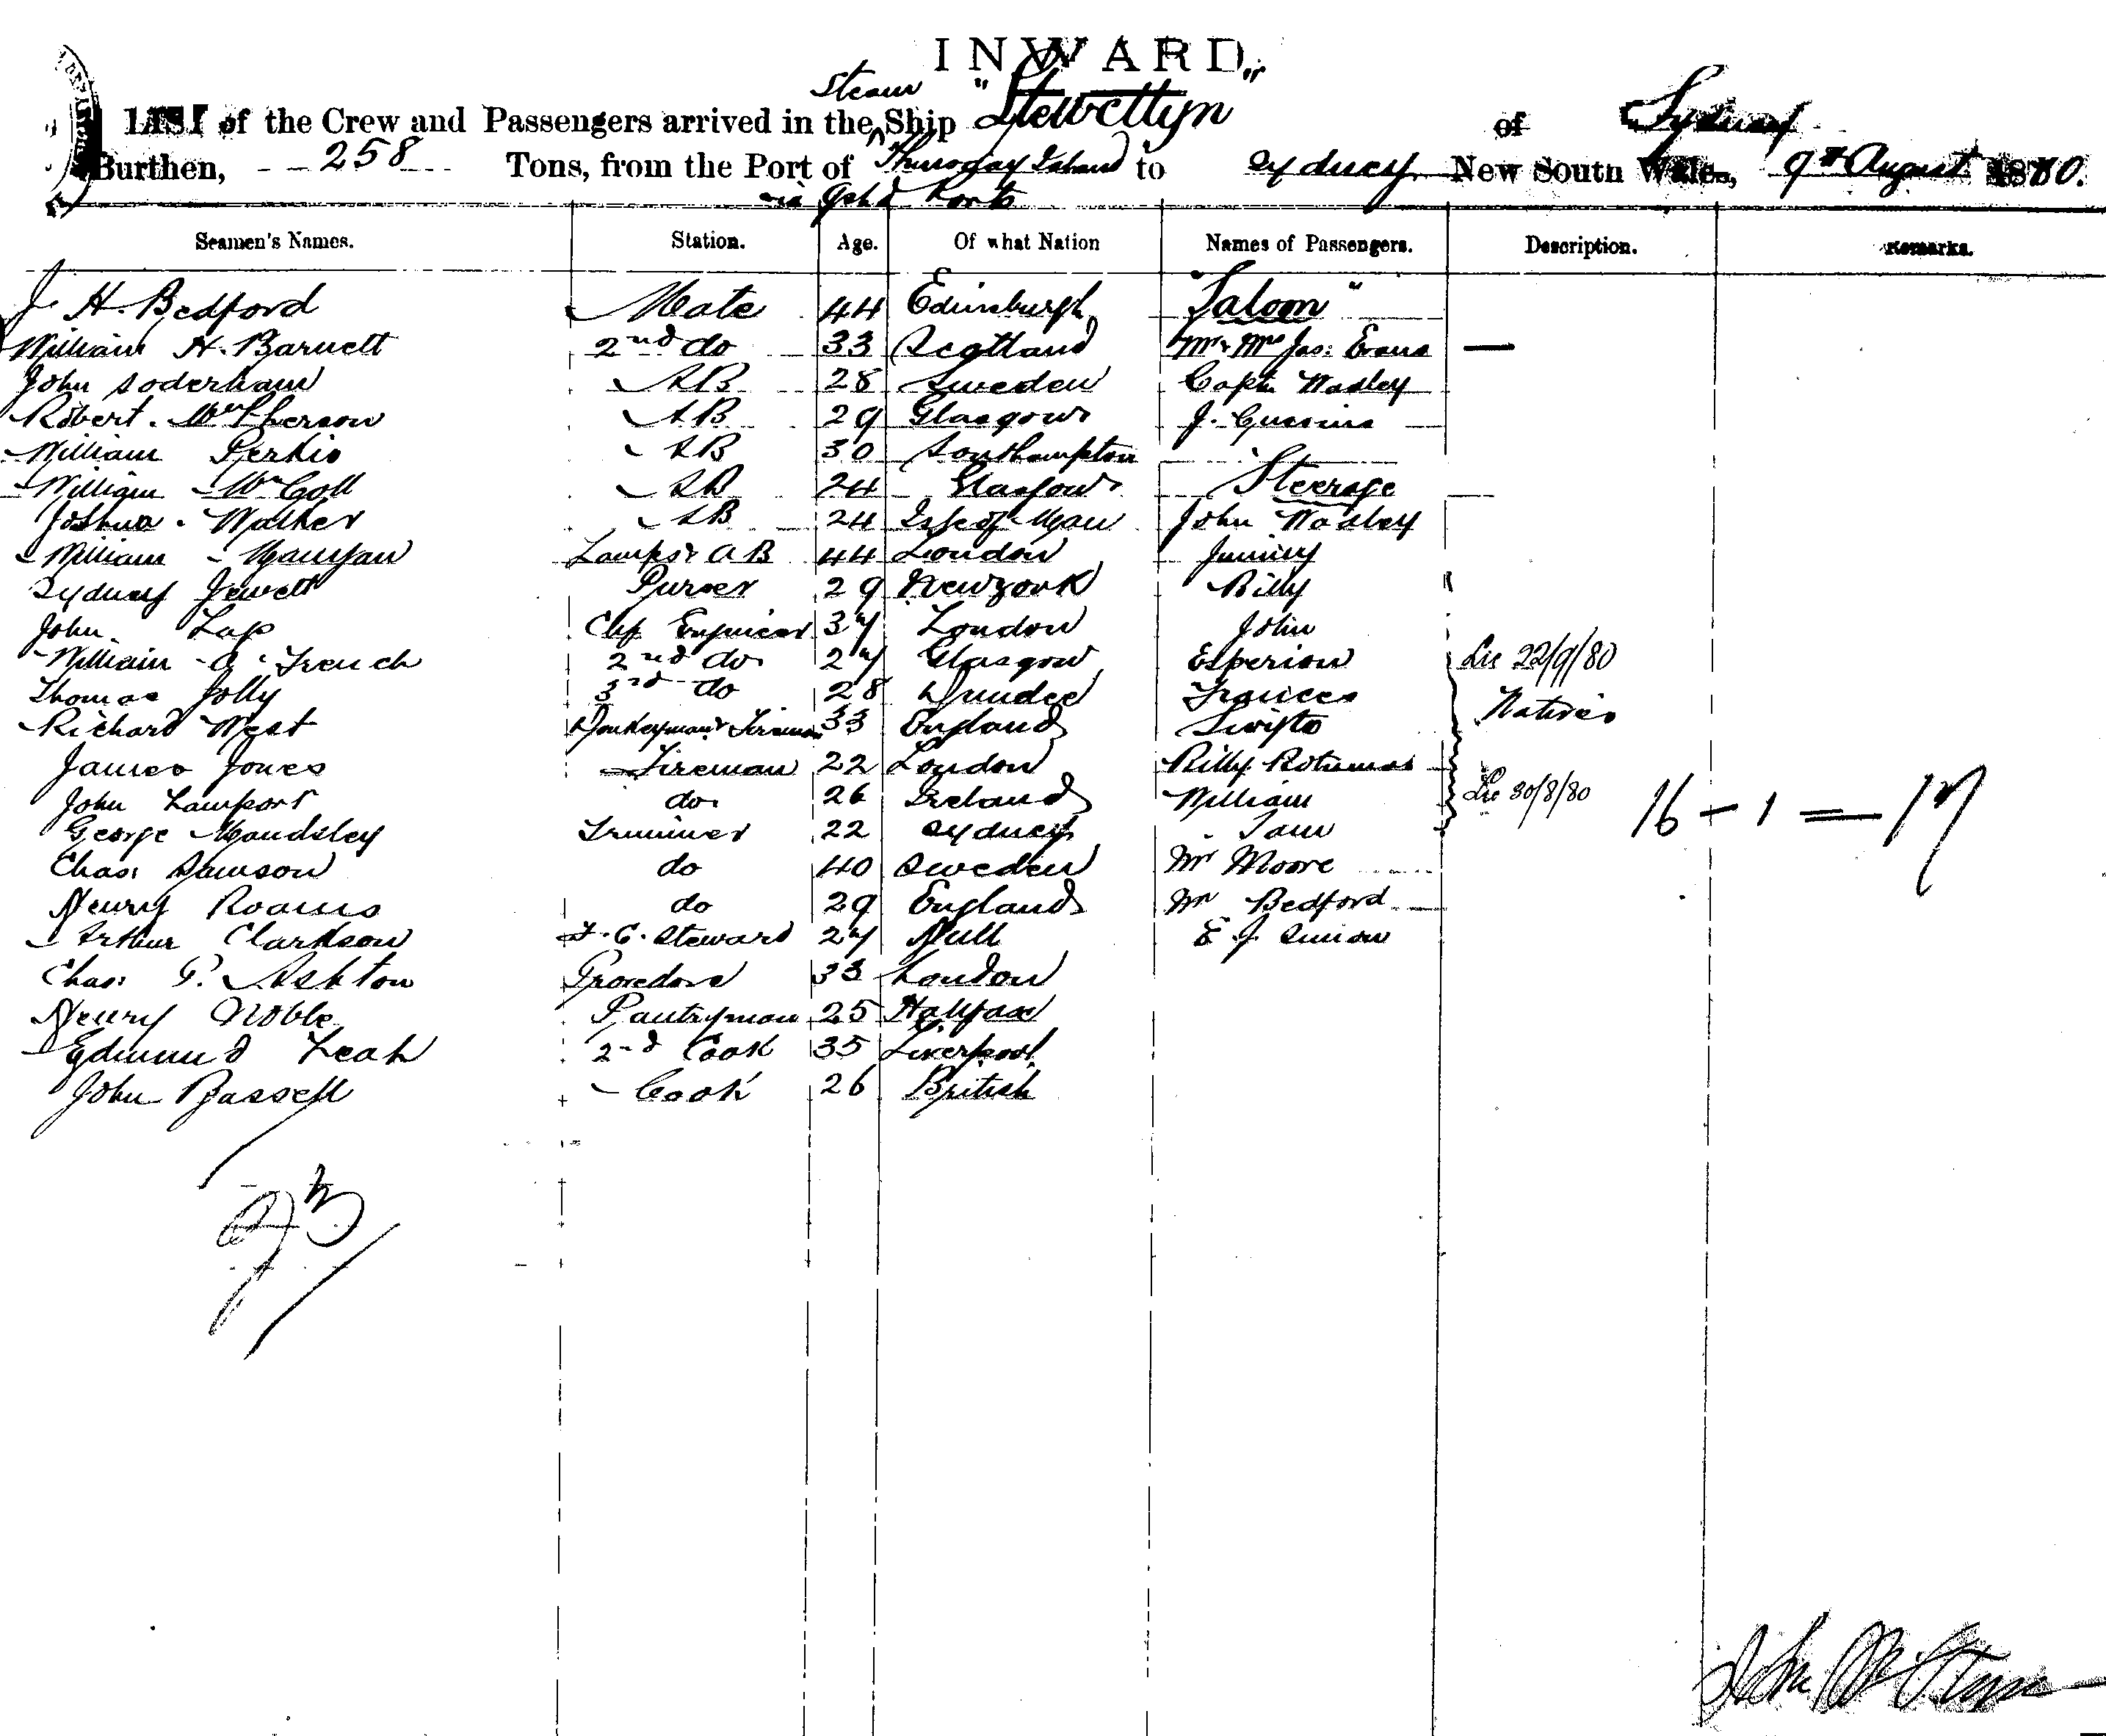 INWARD,
Steam
LIST of the Crew and Passengers arrived in the Ship "Llewellyn" of Sydney
Burthen, 258 Tons, from the Port of Thursday Island to Sydney New South Wales, 9th August 1880.
via Qsld Ports
Seamen's Names. Station. Age. Of what Nation Names of Passengers. Description. Remarks.
J. H. Bedford Mate 44 Edinburgh Saloon"
William H. Barnett 2nd do 33 Scotland Mr & Mrs Jas: Evans —
John Soderham AB 28 Sweden Capt. Wadley
Robert McPherson AB 29 Glasgow J.
William Perkis AB 30 Southampton
William McColl AB 24 Glasgow Steerage
Joshua Walker AB 24 Isle of Man John Wadley
William Lamps & AB 44 London Jimmy
Sydney Jewett Purser 29 Newyork Billy
John Chf Engineer 37 London John
William A. French 2nd do 27 Glasgow Lie 22/9/80
Thomas Jolly 3rd do 28 Dundee Frances Natives
Richard West Donkeyman & Fireman 33 England
James Jones Fireman 22 London Billy Rotumah
John Lamport do 26 Ireland William Lie 30/8/80 16 - 1 = 17
George Maudsley Trimmer 22 Sydney Sam
Chas: Samson do 40 Sweden Mr Moore
Henry do 29 England Mr Bedford
Arthur Clarkson F. C. Steward 27 Hull E. J.
Chas: P. Ashton 33 London
Henry Noble Pantryman 25 Halifax
Edmund Leah 2nd Cook 35 Liverpool
John Bassell Cook 26 British
23
John